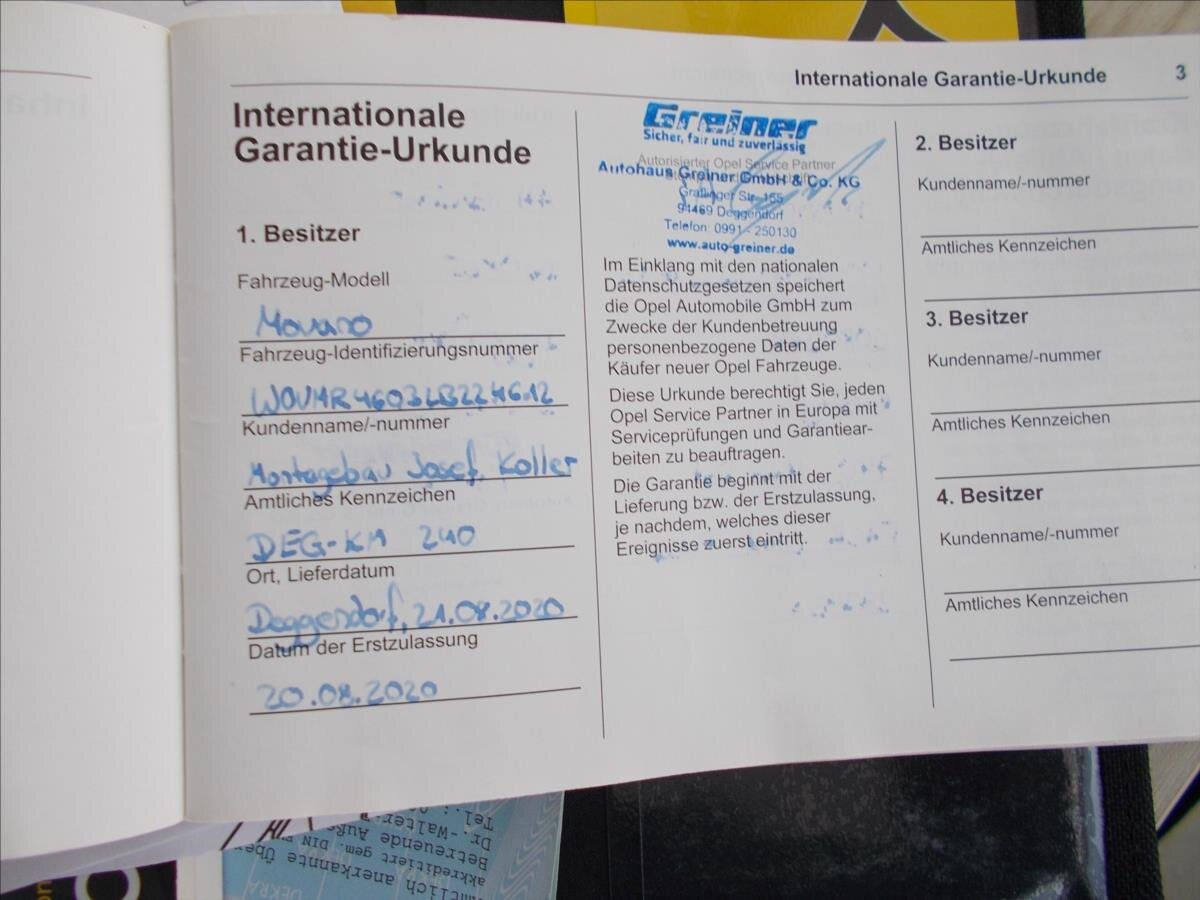 Internationale Garantie-Urkunde 3
Internationale
Garantie-Urkunde
1. Besitzer
Fahrzeug-Modell
Movano
Fahrzeug-Identifizierungsnummer
W0VMR4603LB224612
Kundenname/-nummer
Montagebau Josef Koller
Amtliches Kennzeichen
DEG-KM 240
Ort, Lieferdatum
Deggendorf, 21.08.2020
Datum der Erstzulassung
20.08.2020
Greiner
Sicher, fair und zuverlässig
Autorisierter Opel Service Partner
Autohaus Greiner GmbH & Co. KG
Graflinger Str. 155
94469 Deggendorf
Telefon: 0991 - 250130
www.auto-greiner.de
Im Einklang mit den nationalen
Datenschutzgesetzen speichert
die Opel Automobile GmbH zum
Zwecke der Kundenbetreuung
personenbezogene Daten der
Käufer neuer Opel Fahrzeuge.
Diese Urkunde berechtigt Sie, jeden
Opel Service Partner in Europa mit
Serviceprüfungen und Garantiear-
beiten zu beauftragen.
Die Garantie beginnt mit der
Lieferung bzw. der Erstzulassung,
je nachdem, welches dieser
Ereignisse zuerst eintritt.
2. Besitzer
Kundenname/-nummer
Amtliches Kennzeichen
3. Besitzer
Kundenname/-nummer
Amtliches Kennzeichen
4. Besitzer
Kundenname/-nummer
Amtliches Kennzeichen
Tel.:
Dr.-Walter-
Betreuende Auß
akkreditiert gem. DIN
amtlich anerkannte Über
DEKRA